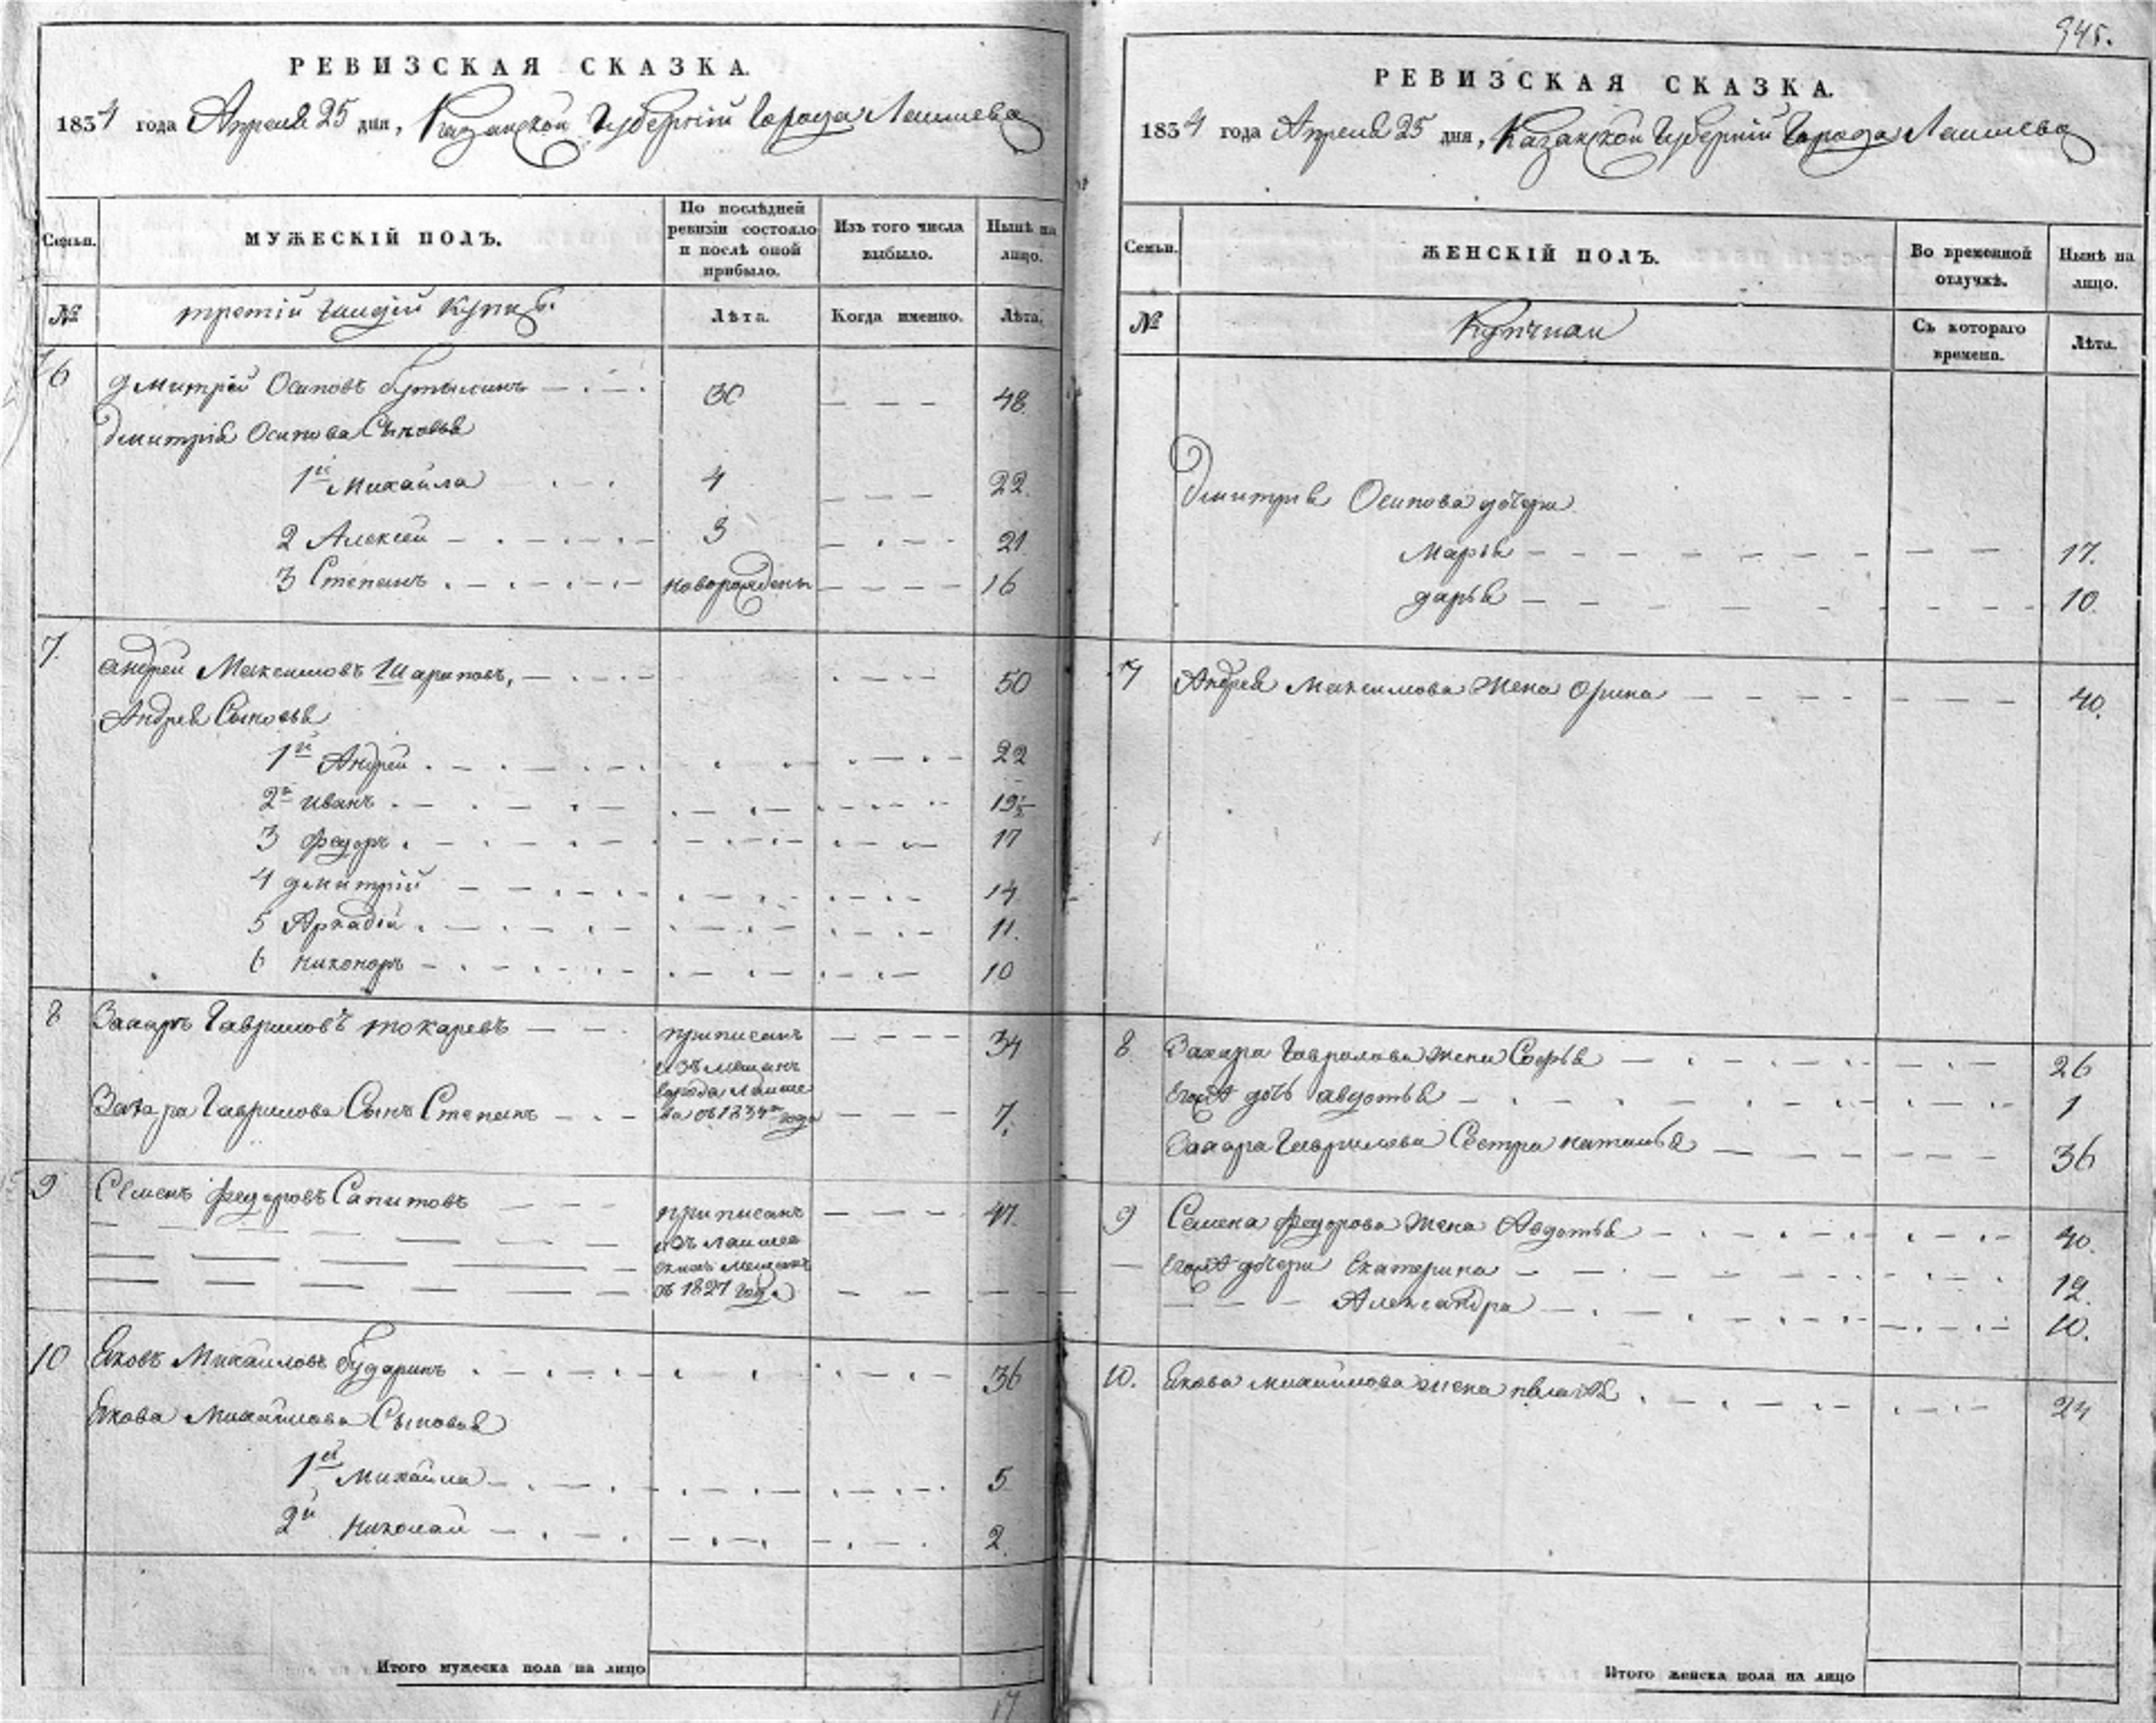 945.
РЕВИЗСКАЯ СКАЗКА.
1834 года Апреля 25 дня, Казанской Губернiи Города Лаишева
Семьи. МУЖЕСКIЙ ПОЛЪ. По послѣдней ревизiи состояло и послѣ оной прибыло. Изъ того числа выбыло. Нынѣ на лицо.
№ третiй гилдiи Купцъ. Лѣта. Когда именно. Лѣта.
6 Дмитрей Осиповъ 30 48
Дмитрiя Осипова Сыновья
1й Михайла 4 22
2 Алексей 3 21
3 Степанъ новорожденъ 16
7. Андрей Максимовъ Шариповъ, 50
Андрея Сыновья
1й Андрей 22
2й Иванъ 19½
3 Федоръ 17
4 Дмитрiй 14
5 Аркадiй 11.
6 Никоноръ 10
8 Захаръ Гавриловъ Токаревъ приписанъ 34
изъ мещанъ
города Лаише
Захара Гаврилова Сынъ Степанъ ва съ 1834го года 7.
9 Семенъ Федоровъ Сапитовъ приписанъ 47.
изъ Лаишев
скихъ мещанъ
съ 1827 года
10 Яковъ Михайловъ Бударинъ 36
Якова Михайлова Сыновья
1й Михайла 5
2й Николай 2
Итого мужеска пола на лицо
17
РЕВИЗСКАЯ СКАЗКА.
1834 года Апреля 25 дня, Казанской Губернiи Города Лаишева
Семьи. ЖЕНСКIЙ ПОЛЪ. Во временной отлучкѣ. Нынѣ на лицо.
№ Съ котораго времени. Лѣта.
Дмитрiя Осипова дочери
Марья 17.
Дарья 10.
7 Андрея Максимова Жена Орина 40.
8 Захара Гаврилова жена Софья 26
Его дочь Авдотья 1
Захара Гаврилова Сестра Наталья 36
9 Семена Федорова Жена Авдотья 40.
Его дочери Екатерина 12.
Александра 10.
10. Якова Михайлова жена 24
Итого женска пола на лицо